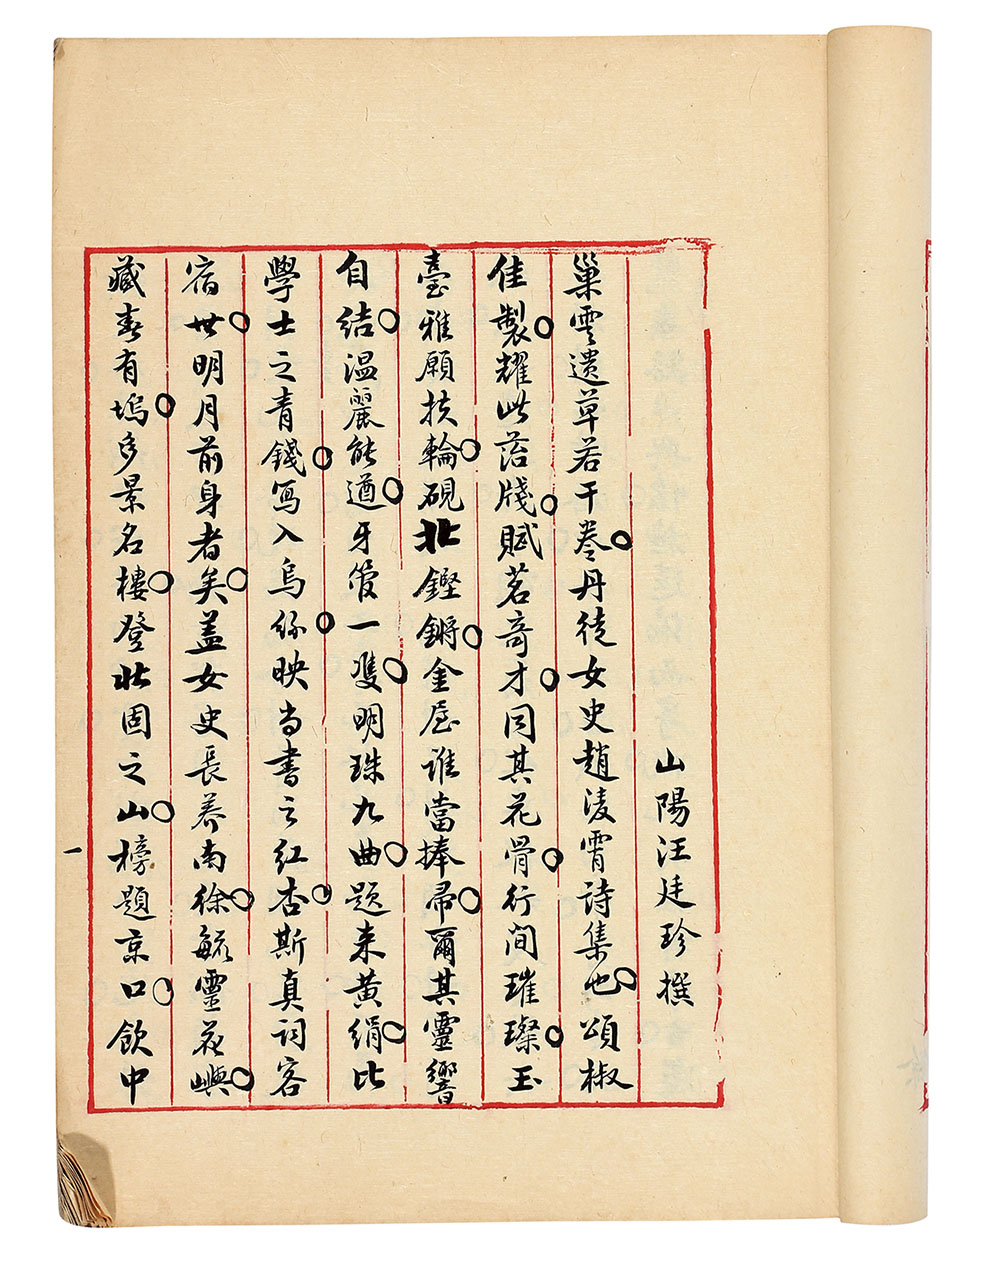 山陽汪廷珍撰
巢雲遺草若干卷丹徒女史趙淩霄詩集也頌椒
佳製耀此苔牋賦茗奇才同其花骨行間璀璨玉
臺雅願扶輪硯北鏗鏘金屋誰當捧帚爾其靈響
自結温麗能遒牙管一雙明珠九曲題来黄絹比
學士之青錢寫入烏絲映尚書之紅杏斯真詞客
宿世明月前身者矣蓋女史長养南徐毓靈花嶼
藏春有塢多景名樓登北固之山榜題京口飲中
一